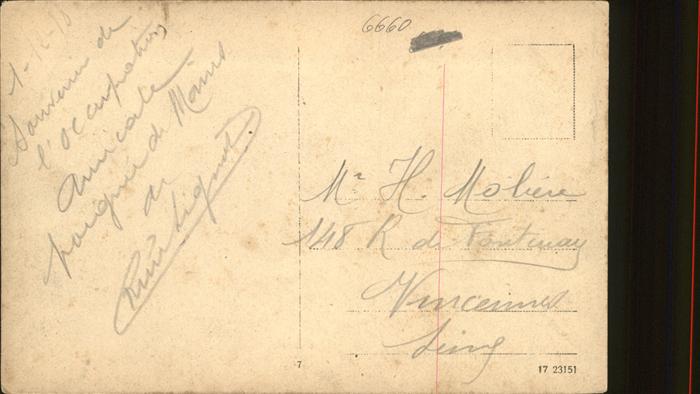 6660
1-12-18
Souvenir de
l'occupation
Amicale
poignée de Mains
de
Mr H. Molière
148 R de Fontenay
Vincennes
Seine
7
17 23151